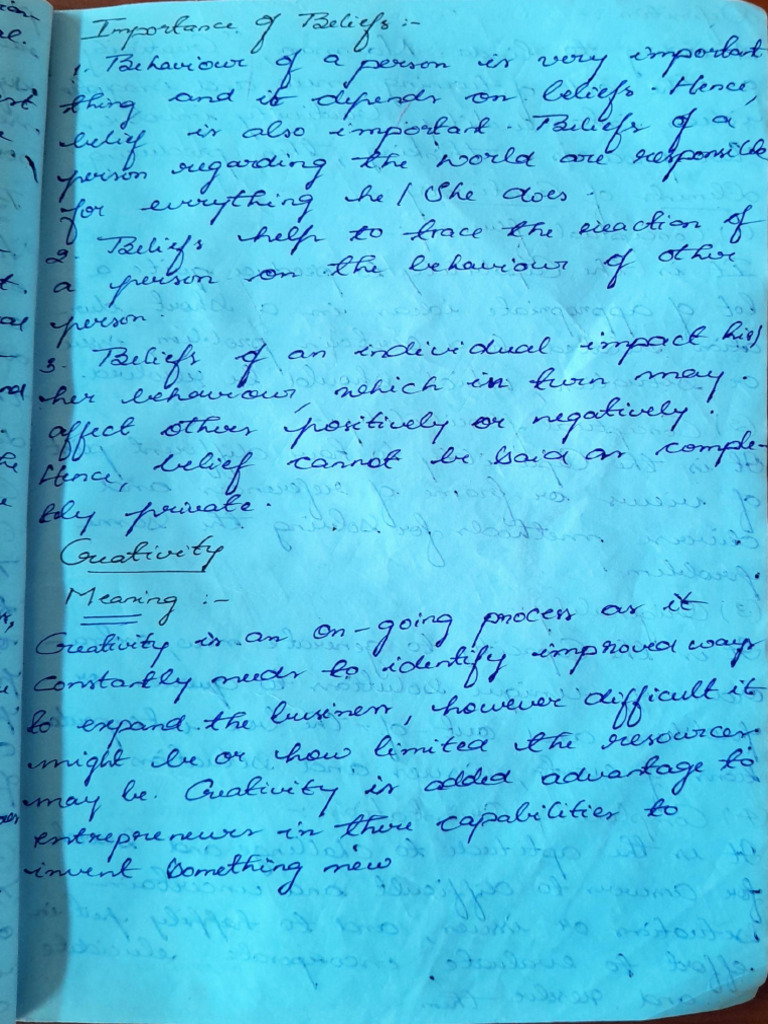 Importance of Beliefs :-
1. Behaviour of a person is very important
thing and it depends on beliefs. Hence,
belief is also important. Beliefs of a
person regarding the world are responsible
for everything he / She does.
2. Beliefs help to trace the reaction of
a person on the behaviour of other
person.
3. Beliefs of an individual impact his/
her behaviour, which in turn may
affect others positively or negatively.
Hence, belief cannot be said as comple-
tely private.
Creativity
Meaning :-
Creativity is an on-going process as it
constantly needs to identify improved ways
to expand the business, however difficult it
might be or how limited the resources
may be. Creativity is added advantage to
entrepreneurs in there capabilities to
invent something new